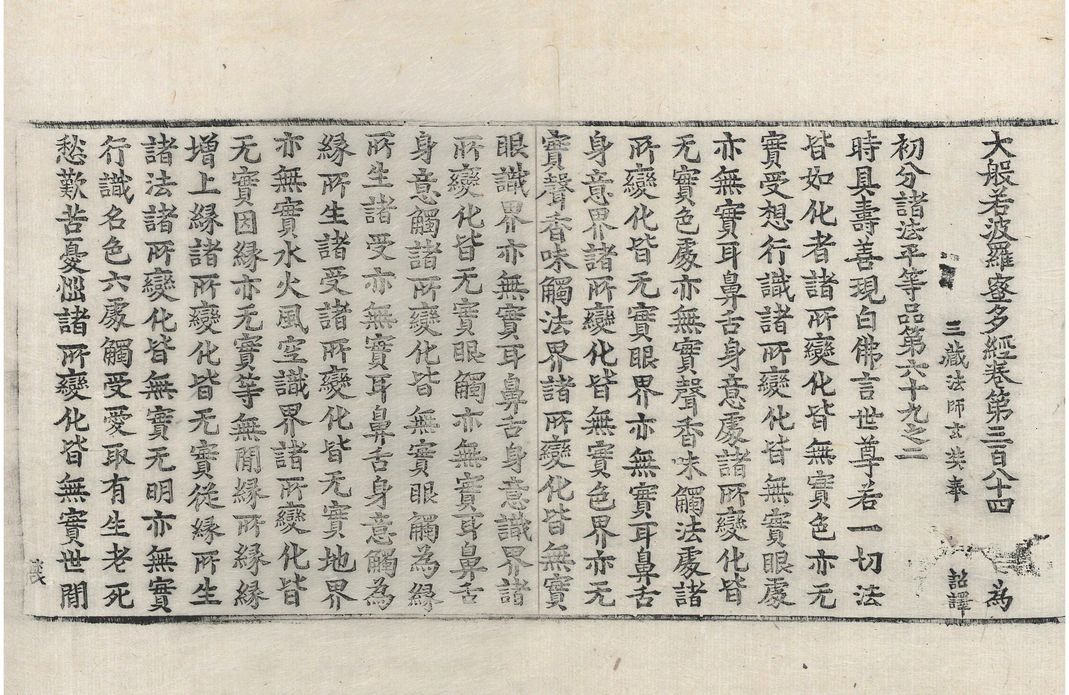 大般若波羅蜜多經卷第三百八十四 為
三藏法師玄奘奉 詔譯
初分諸法平等品第六十九之二
時具壽善現白佛言世尊若一切法
皆如化者諸所變化皆無實色亦无
實受想行識諸所變化皆無實眼處
亦無實耳鼻舌身意處諸所變化皆
无實色處亦無實聲香味觸法處諸
所變化皆无實眼界亦无實耳鼻舌
身意界諸所變化皆無實色界亦无
實聲香味觸法界諸所變化皆無實
眼識界亦無實耳鼻舌身意識界諸
所變化皆无實眼觸亦無實耳鼻舌
身意觸諸所變化皆無實眼觸為緣
所生諸受亦無實耳鼻舌身意觸為
緣所生諸受諸所變化皆无實地界
亦無實水火風空識界諸所變化皆
无實因緣亦无實等無間緣所緣緣
增上緣諸所變化皆无實從緣所生
諸法諸所變化皆無實无明亦無實
行識名色六處觸受愛取有生老死
愁歎苦憂惱諸所變化皆無實世間